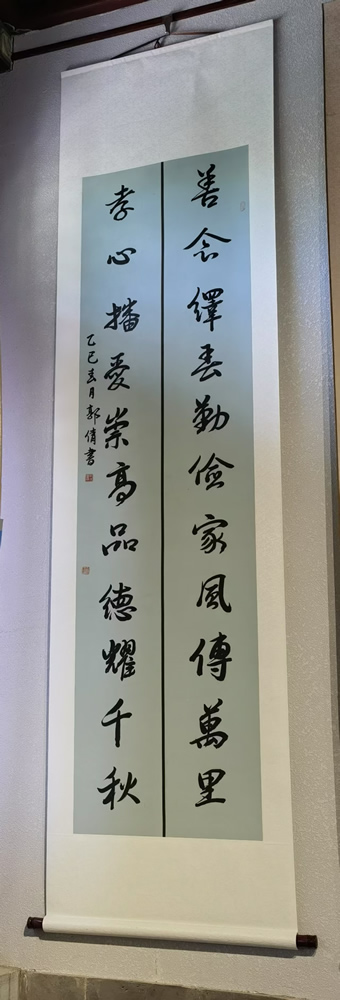 善念繹春勤儉家風傳萬里
孝心播愛崇高品德耀千秋
乙巳春月郭倩書